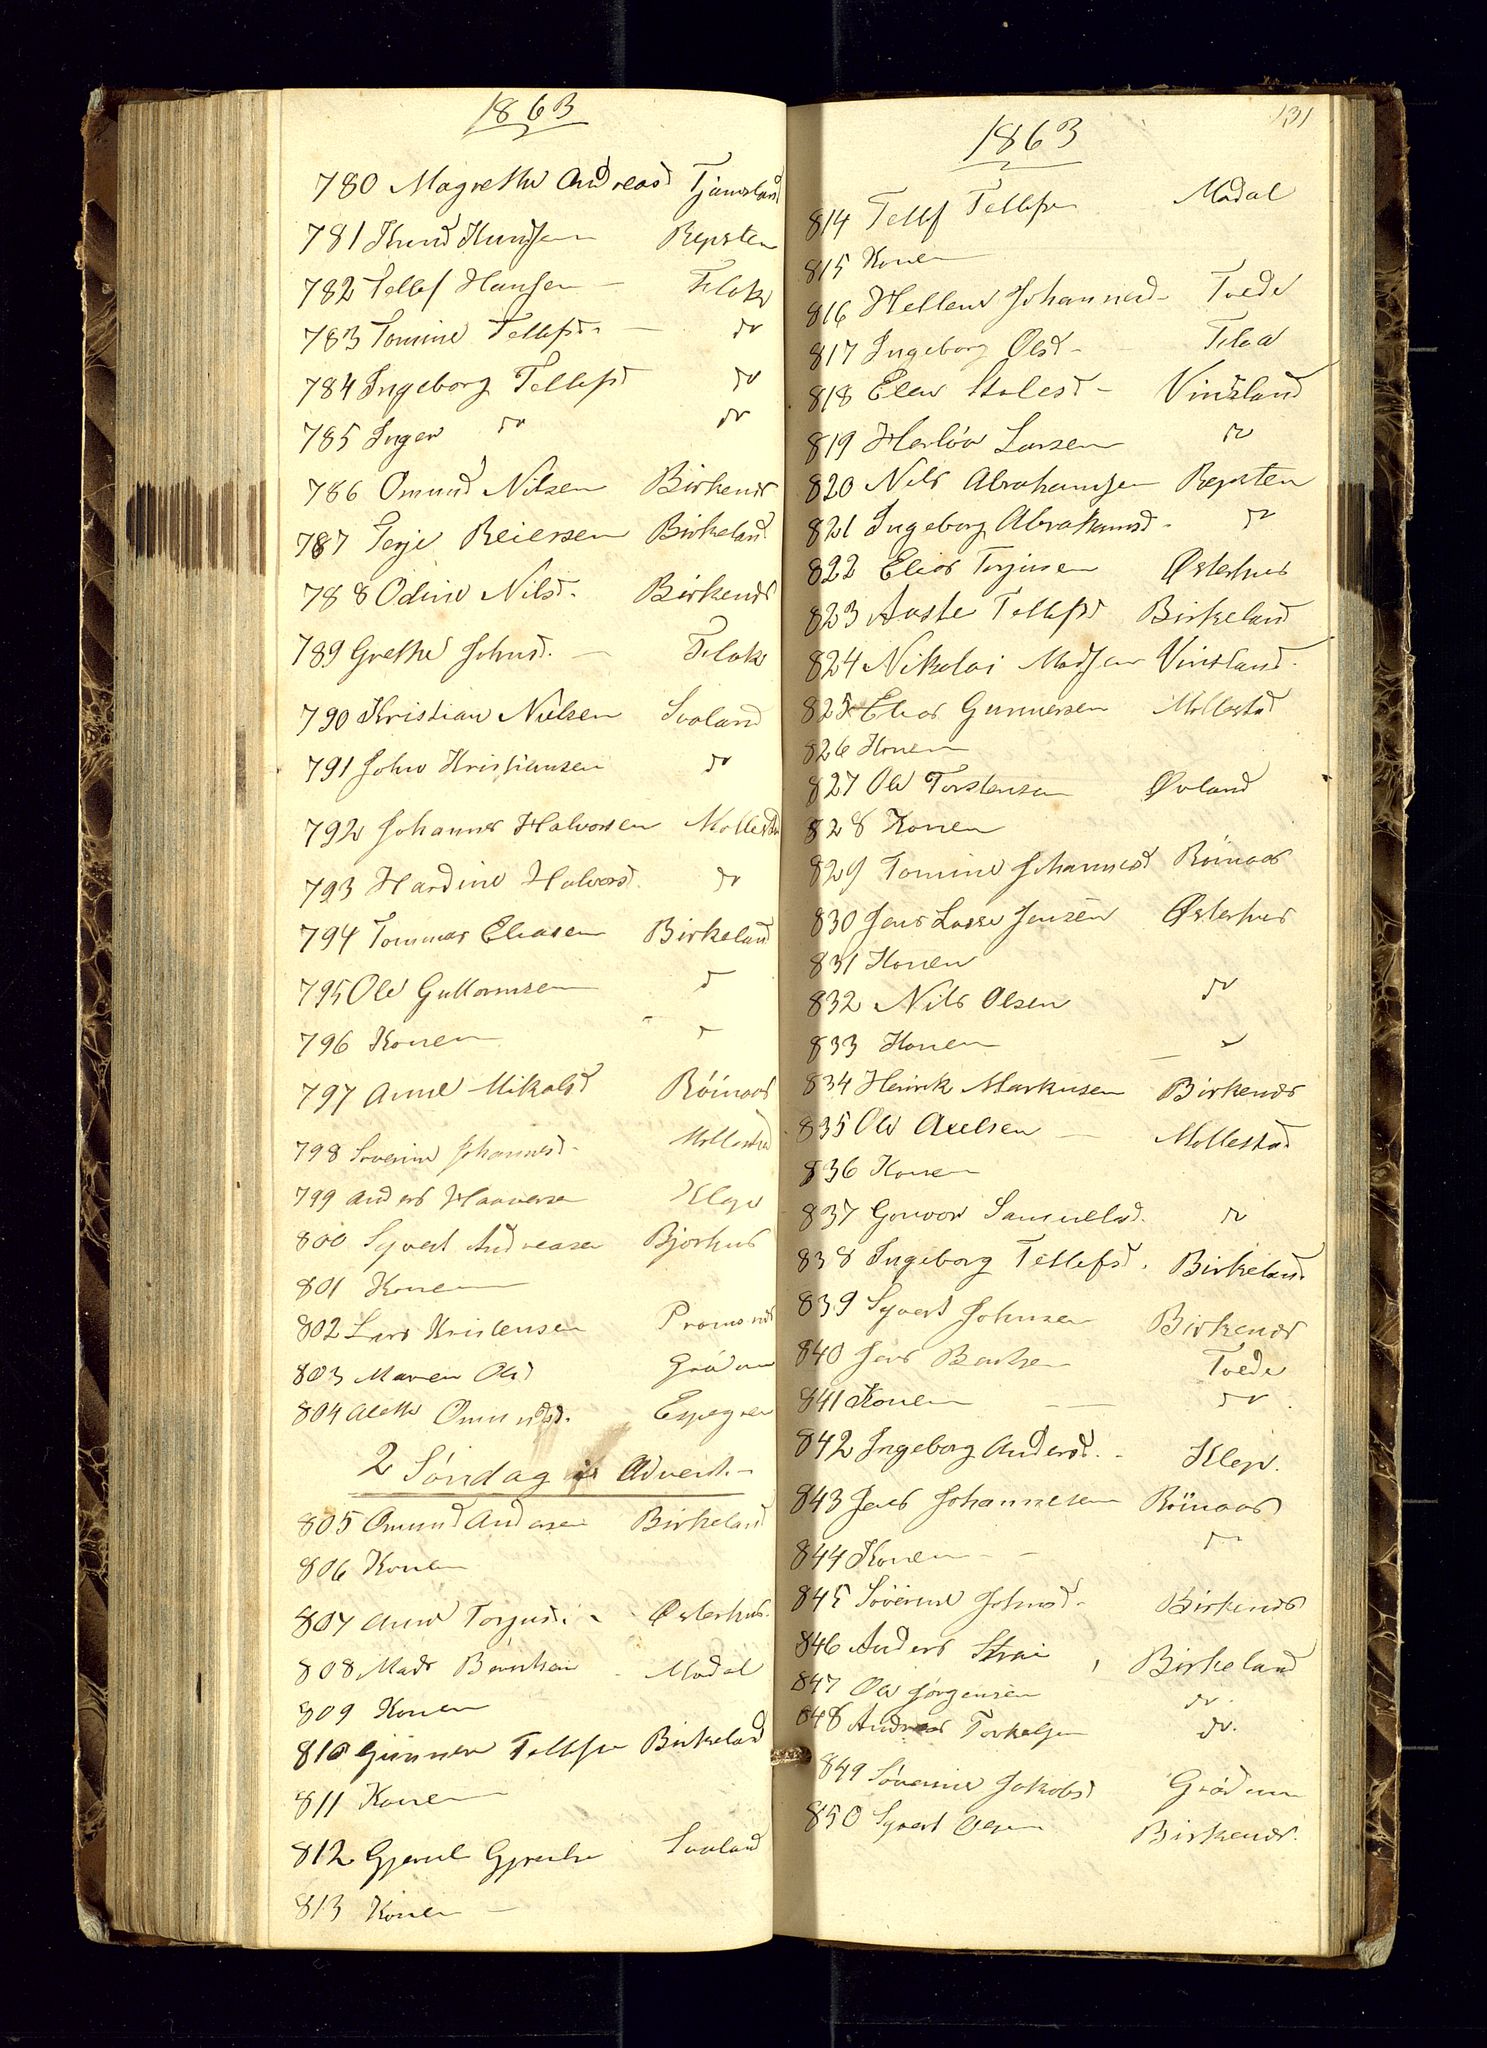 1863
780 Magrethe Andreasd Tjamsland
781 Knud Knudsen Repsten
782 Tellef Hansen - Flak
783 Tomine Tellefsd. - do
784 Ingeborg Tellefsd do
785 Inger do do
786 Omund Nilsen Birkenes
787 Terje Reiersen Birkeland
788 Odine Nilsd. Birkenes
789 Grethe Johnsd. - Flak
790 Kristian Nielsen Svaland
791 John Kristiansen do
792 Johannes Halvorsen Mollestad
793 Hardine Halvorsd. do
794 Tommas Eliasen Birkeland
795 Ole Guttormsen d
796 Konen
797 Anne Mikalsd Röinaas
798 Soverine Johannesd. Mollestad
799 Anders Haaversen Klep
800 Syvert Andreasen Bjorhus
801 Konen
802 Lars Kristensen
803 Maren Olsd Grödum
804 Alethe Omundsd. Espegren
2 Söndag i Advent. -
805 Omund Andersen Birkeland
806 Konen
807 Anne Torjusd. - Østerhus.
808 Mads Modal
809 Konen
810 Gunner Tellefsen Birkeland
811 Konen
812 Gjerul Svaland
813 Konen -
131
1863
814 Tellef Tellefsen Modal
815 Konen
816 Hellene Johannesd - Tvede
817 Ingeborg Olsd - Flaa
818 Elen Stalesd - Vindsland
819 Herlöv Larsen do
820 Nils Abrahamsen Repsten
821 Ingeborg Abrahamsd. do
822 Elias Torjusen Østerhus
823 Aaste Tellefsd Birkeland
824 Nikolai Madsen Vindsland.
825 Elias Gunnersen Mollestad
826 Konen
827 Ole Torstensen Øvland
828 Konen
829 Tomine Johannesd Röinaas
830 Jens Lasse Jensen Østerhus
831 Konen
832 Nils Olsen do
833 Konen
834 Henrik Markusen Birkenes
835 Ole Axelsen - Mollestad
836 Konen
837 Gonvor Samuelsd. do
838 Ingeborg Tellefsd. Birkeland
839 Syvert Johnsen Birkenes
840 Jens Tvede
841 Konen - - do
842 Ingeborg Andersd. - Klep.
843 Jens Johannesen Röinaas
844 Konen - - do
845 Söverine Johnsd. Birkenes
846 Anders Strai Birkeland
847 Ole Jörgensen do
848 Andreas Torkelsen do.
849 Söverine Jakobsd Grödum
850 Syvert Olsen Birkenes.